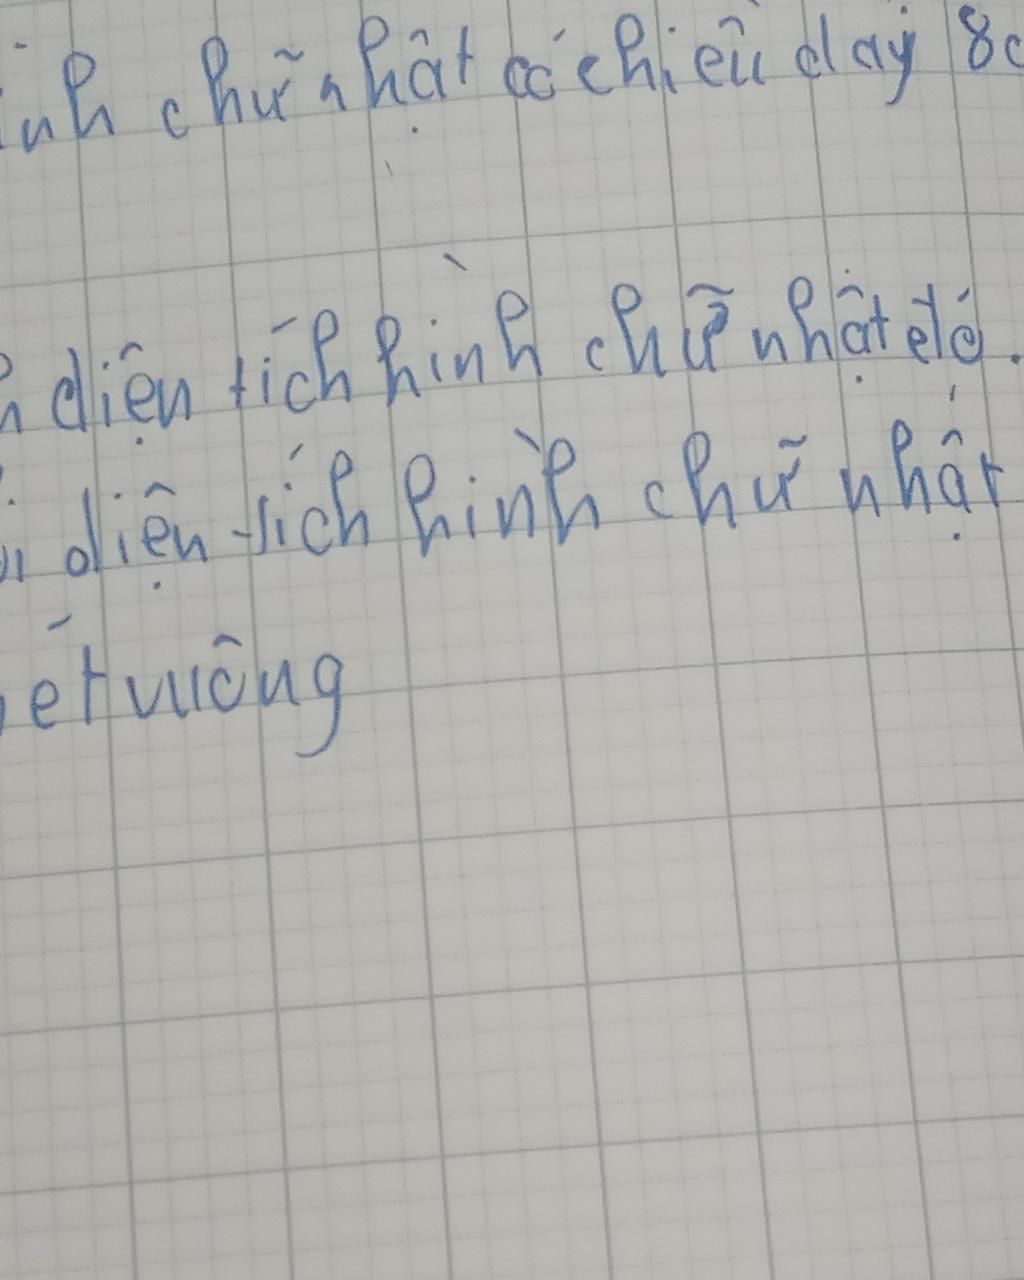 ình chữ nhật có chiều dày 8c
diện tích hình chữ nhật đó.
diện tích hình chữ nhật
ét vuông